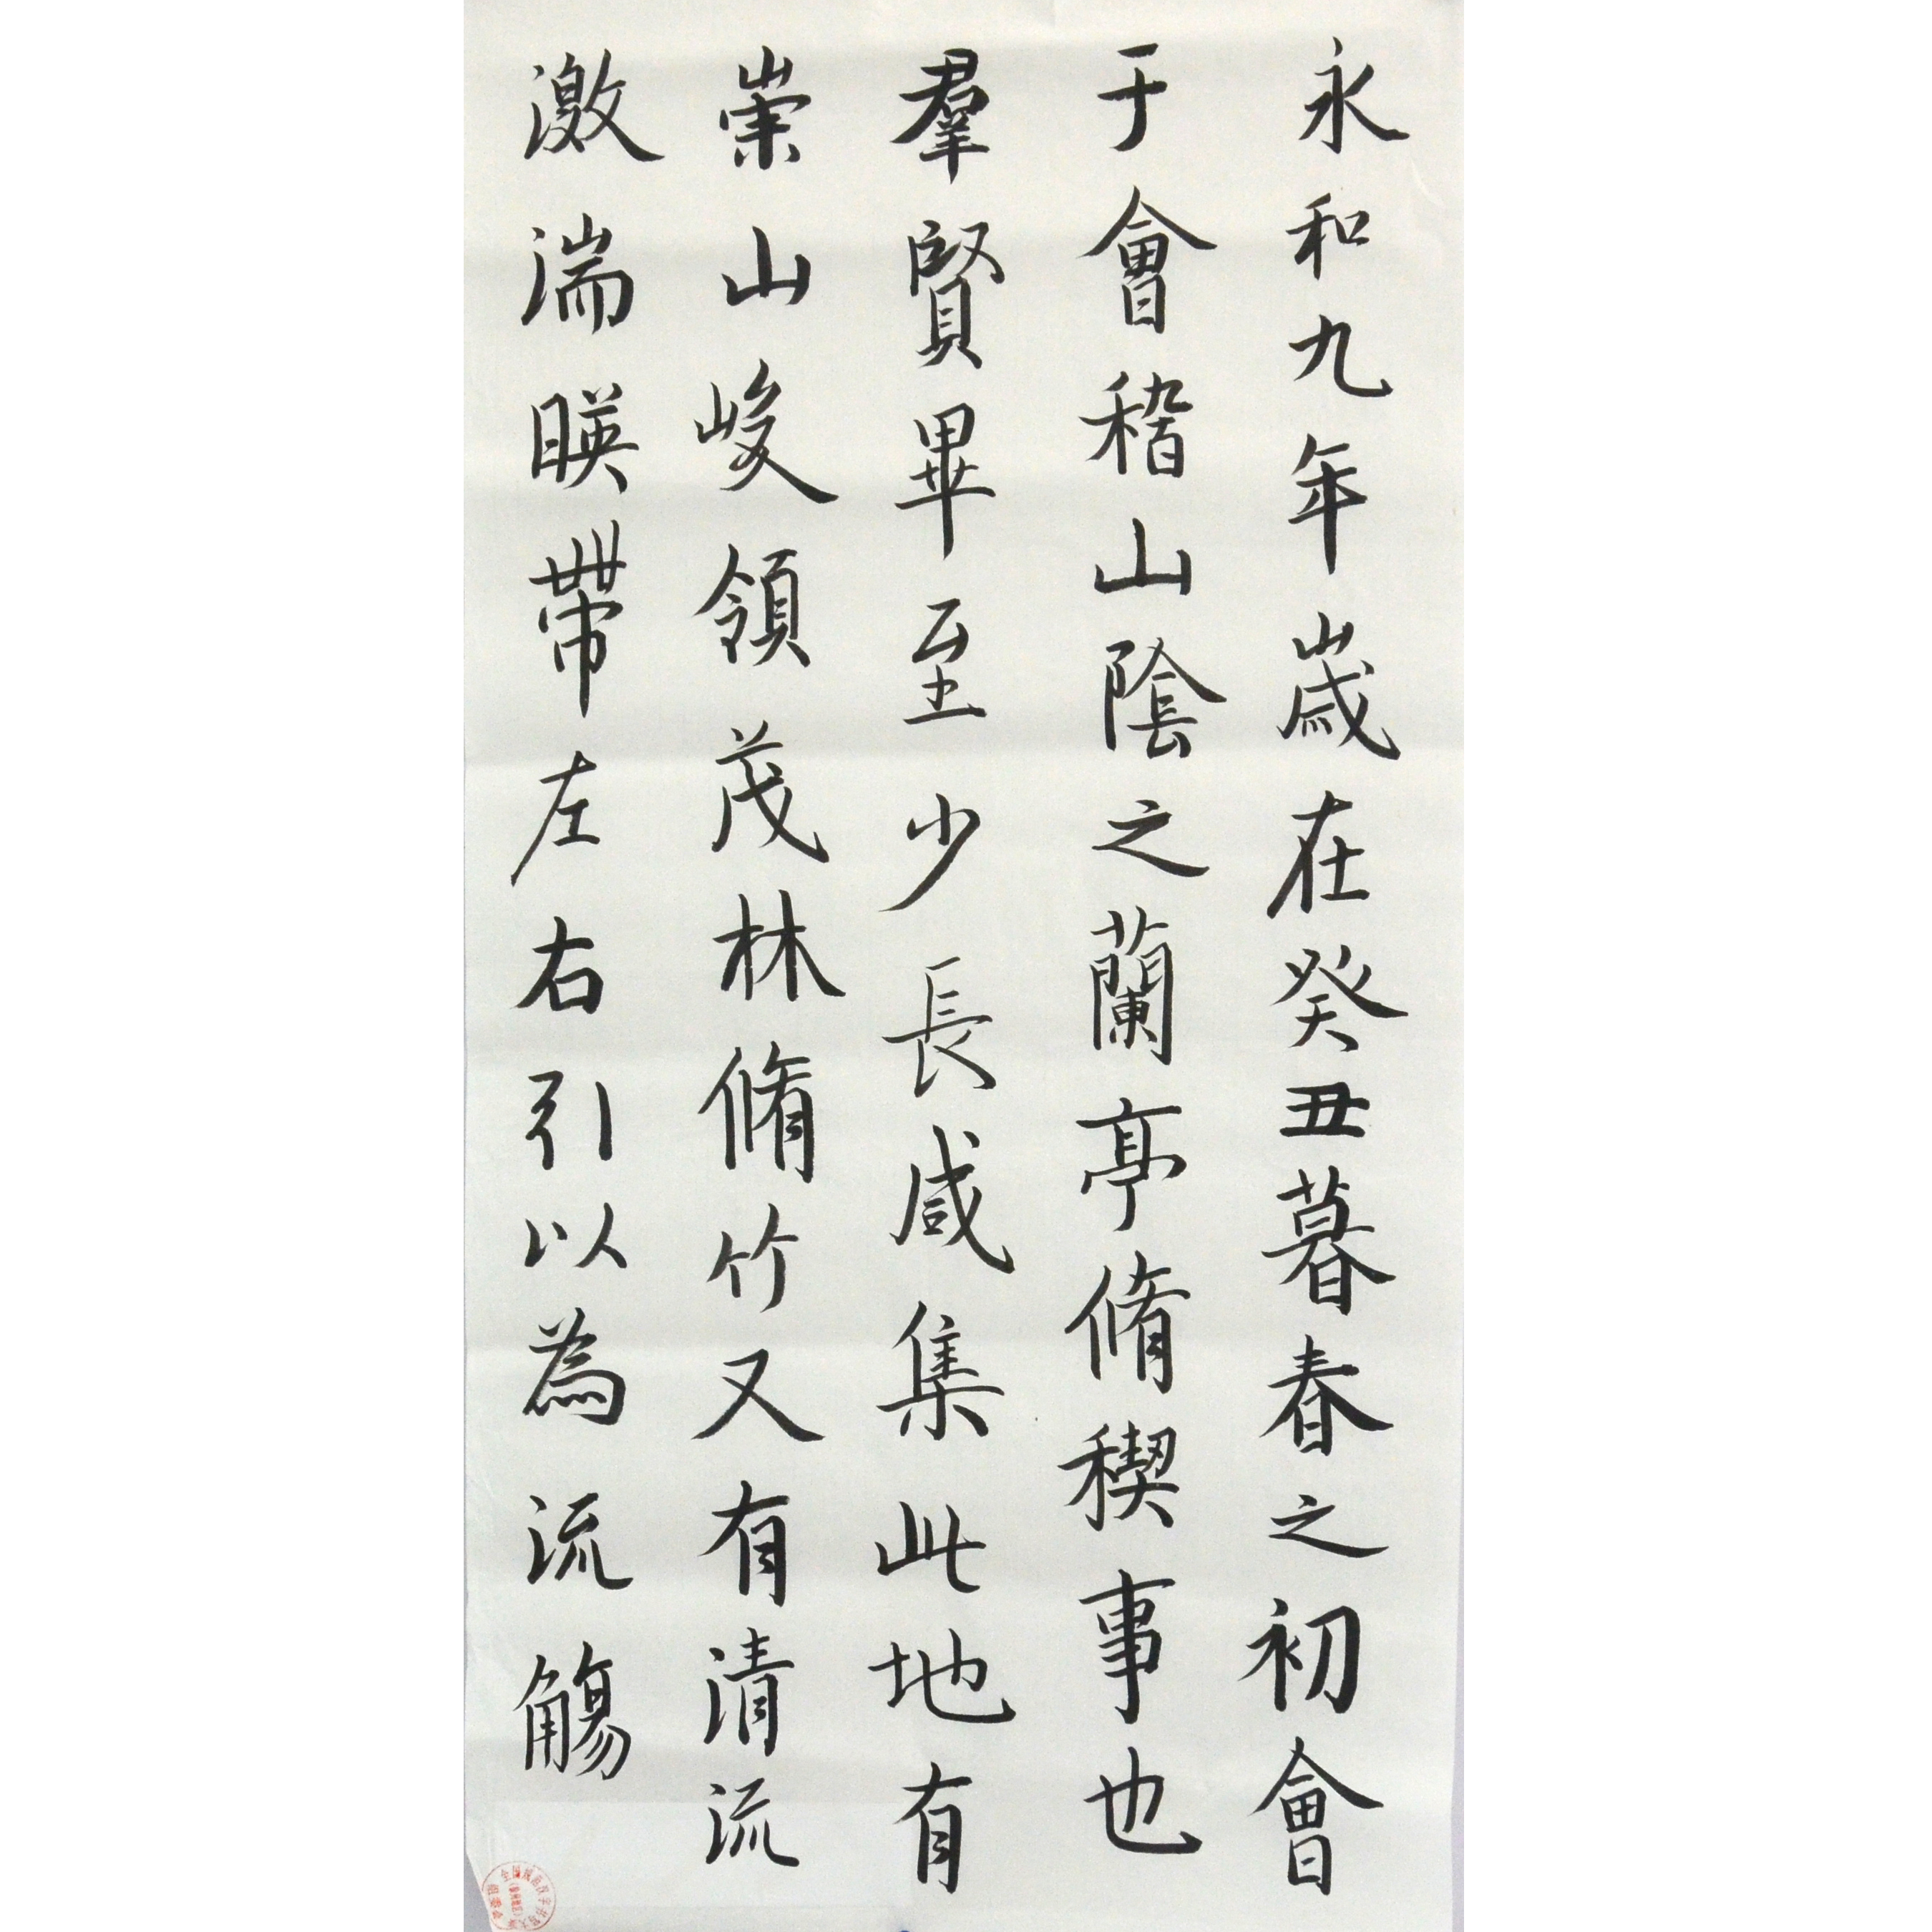 永和九年歲在癸丑暮春之初會
于會稽山陰之蘭亭脩稧事也
羣賢畢至少長咸集此地有
崇山峻領茂林脩竹又有清流
激湍暎帶左右引以為流觴